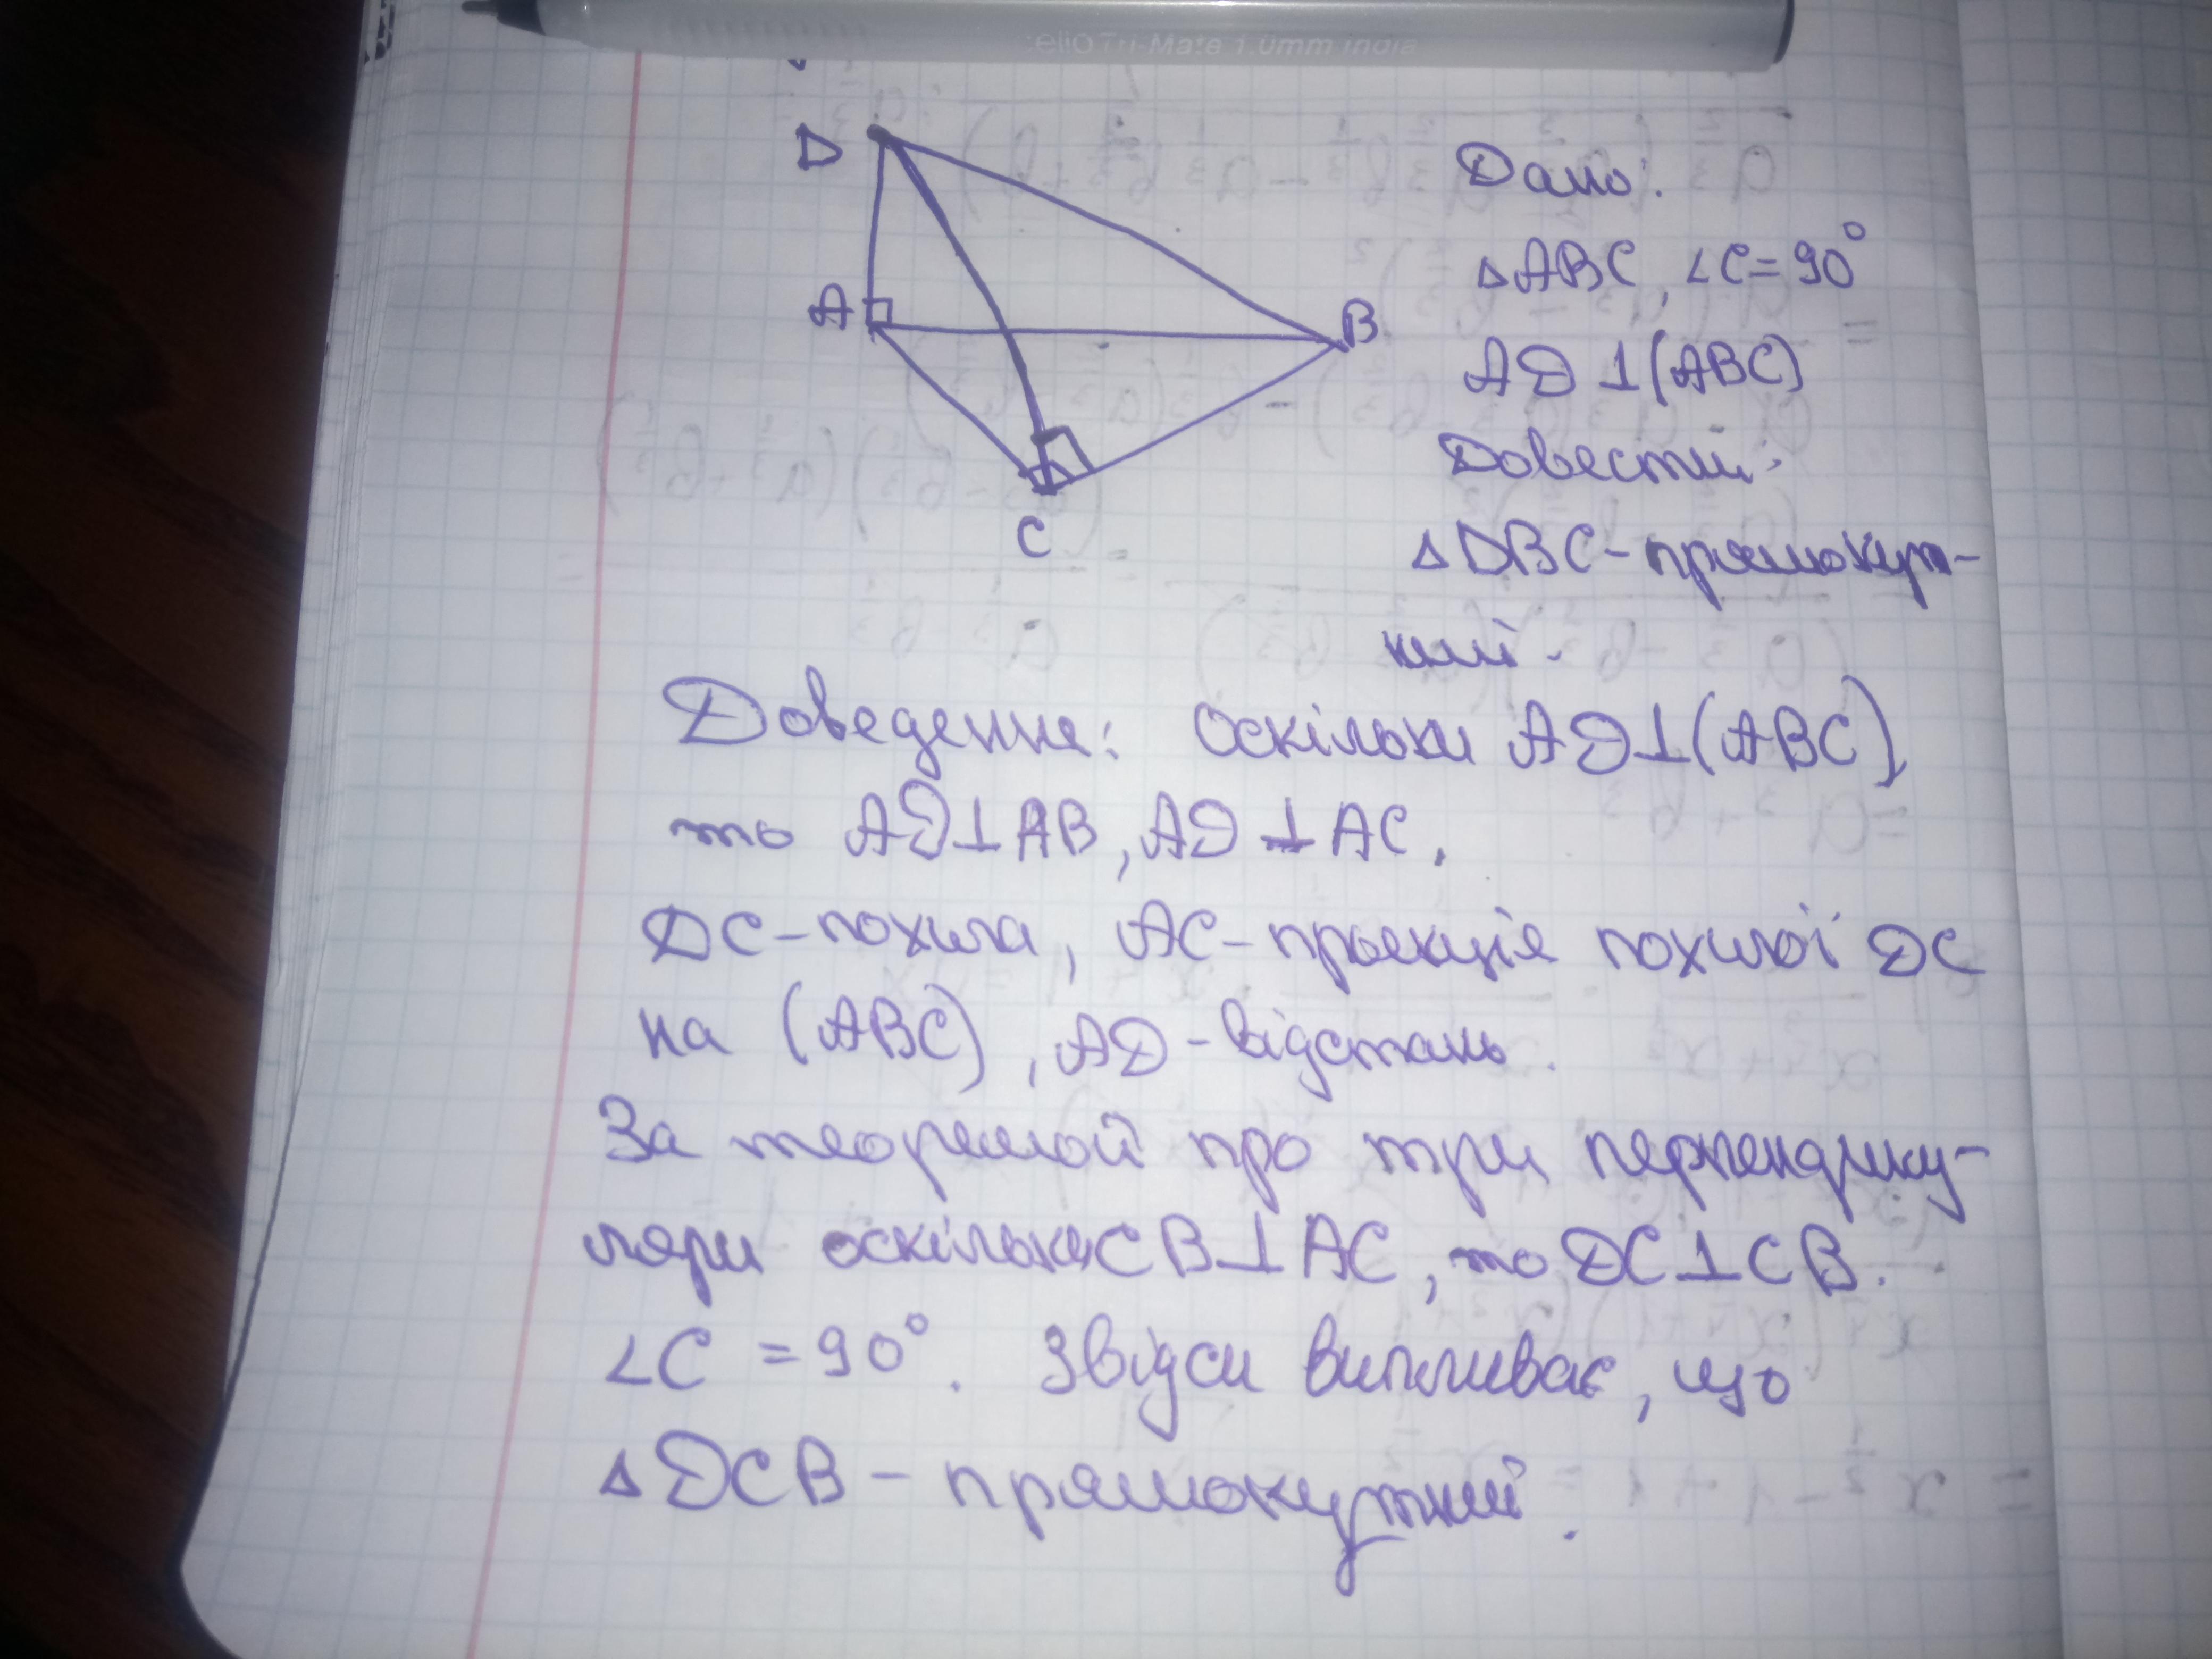 Tri-Mate 1.0mm India
D
A
B
C
Дано:
△ABC, ∠C=90°
AD⊥(ABC)
Довести:
△DBC-прямокут-
ний.
Доведення: Оскільки AD⊥(ABC),
то AD⊥AB, AD⊥AC.
DC-похила, AC-проекція похилої DC
на (ABC), AD-відстань.
За теоремой про три перпендику-
ляри оскільки CB⊥AC, то DC⊥CB.
∠C = 90°. Звідси випливає, що
△DCB - прямокутний.